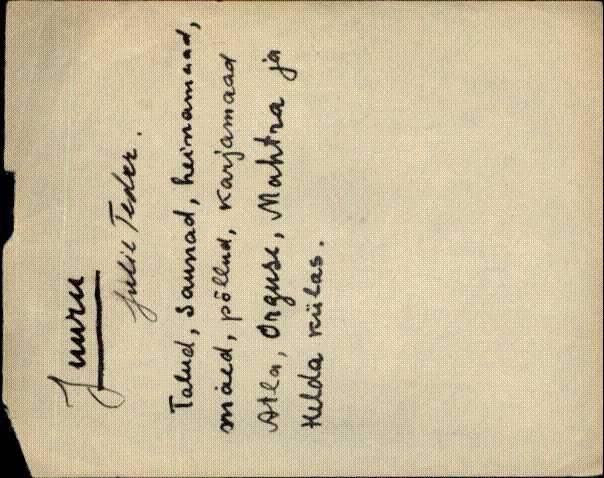 Juuru
Julie Teder.
Talud, saunad, heinamaad,
mäed, põllud, karjamaad
Atla, Orguse, Mahtra ja
Helda külas.